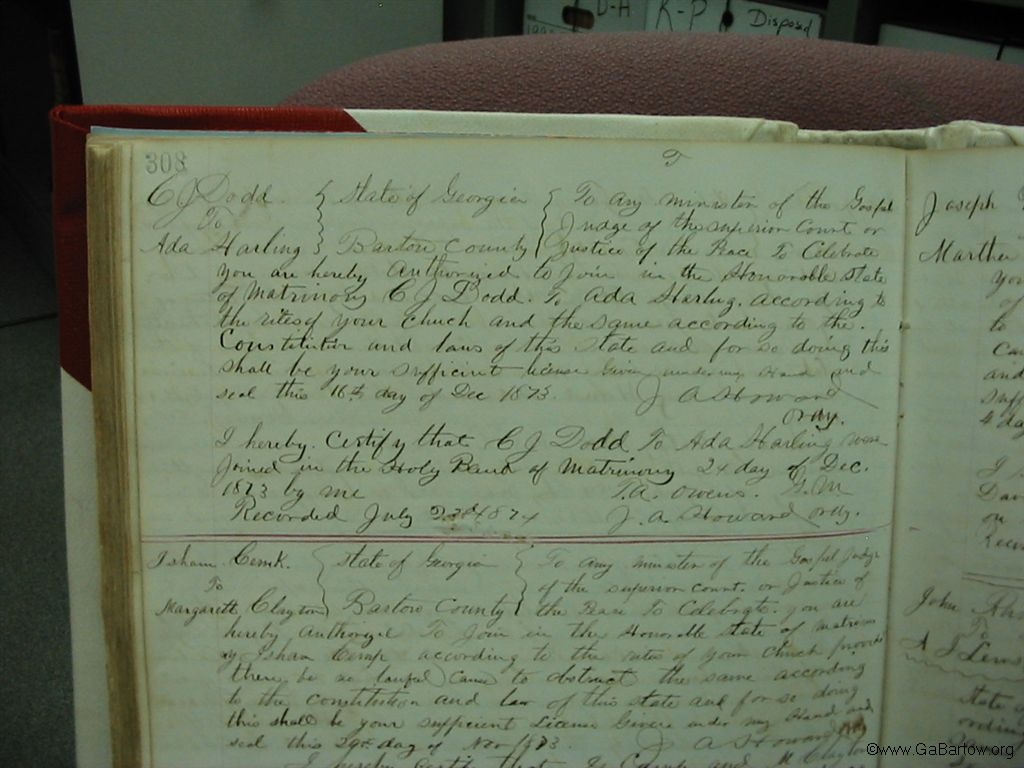 D-H K-P Disposed
308
C J Dodd State of Georgia To any minister of the Gospel
To Judge of the superior Court or
Ada Harling Bartow County Justice of the Peace To Celebrate
you are hereby Authorized to Join in the Honorable State
of Matrimony C J Dodd. To Ada Harling. according to
the rites of your Chuch and the same according to the.
Constitution and laws of this State and for so doing this
shall be your sufficient license Given under my Hand and
seal this 16th day of Dec 1873. J A Howard
Ordy.
I hereby. Certify that C J Dodd To Ada Harling were
Joined in the Holy Band of Matrimony 24 day of Dec.
1873 by me T.A. Owens. G.M
Recorded July 1874 J. A. Howard ordy.
Isham State of Georgia To any minister of the Gospel Judge
To of the superior Court. or Justice of
Margarett Clayton Bartow County the Peace To Celebrate. you are
hereby Authorize To Join in the Honorable State of
Isham Cemp according to the rites of your Chuch provided
there be no lawful Cause to obstruct the same according
to the constitution and law of this State and for so doing
this shall be your sufficient License Given under my Hand and
seal this 29th day of Nov 1873. J A Howard Ordy
I hereby Certify that M Clayton
Joseph
Marther
you
of
to
and
4 day
I
Dav
on
John
To
A J Lewis
State of
©www.GaBartow.org